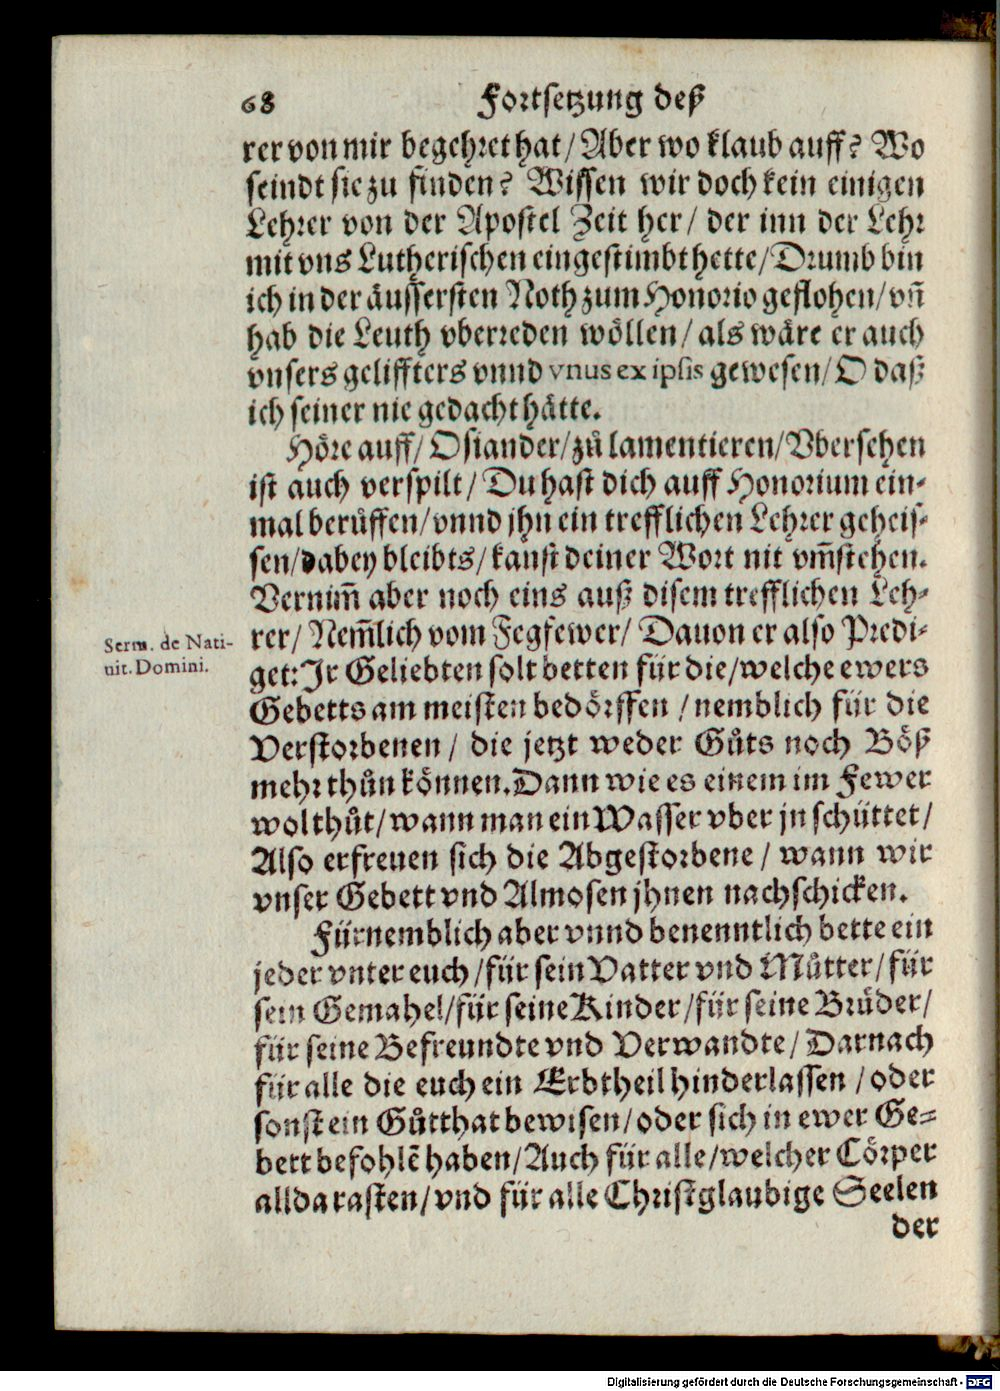 68 Fortsetzung deß
rer von mir begehret hat/ Aber wo klaub auff? Wo
seindt sie zu finden? Wissen wir doch kein einigen
Lehrer von der Apostel Zeit her/ der inn der Lehr
mit vns Lutherischen eingestimbt hette/ Drumb bin
ich in der äussersten Noth zum Honorio geflohen/ vñ
hab die Leuth vberreden wöllen/ als wäre er auch
vnsers geliffters vnnd vnus ex ipsis gewesen/ O daß
ich seiner nie gedacht hätte.
Höre auff/ Osiander/ zů lamentieren/ Vbersehen
ist auch verspilt/ Du hast dich auff Honorium ein-
mal berůffen/ vnnd jhn ein trefflichen Lehrer geheis-
sen/ dabey bleibts/ kanst deiner Wort nit vm̃stehen.
Vernim̃ aber noch eins auß disem trefflichen Leh-
rer/ Nem̃lich vom Fegfewer/ Dauon er also Predi-
get: Jr Geliebten solt betten für die/ welche ewers
Gebetts am meisten bedörffen / nemblich für die
Verstorbenen / die jetzt weder Gůts noch Böß
mehr thůn können. Dann wie es einem im Fewer
wol thůt/ wann man ein Wasser vber jn schüttet/
Also erfreuen sich die Abgestorbene / wann wir
vnser Gebett vnd Almosen jhnen nachschicken.
Fürnemblich aber vnnd benenntlich bette ein
jeder vnter euch / für sein Vatter vnd Můtter/ für
sein Gemahel/ für seine Kinder / für seine Brüder/
für seine Befreundte vnd Verwandte/ Darnach
für alle die euch ein Erbtheil hinderlassen / oder
sonst ein Gůtthat bewisen/ oder sich in ewer Ge-
bett befohlẽ haben/ Auch für alle/ welcher Cörper
allda rasten/ vnd für alle Christglaubige Seelen
der
Serm. de Nati-
uit. Domini.
Digitalisierung gefördert durch die Deutsche Forschungsgemeinschaft - DFG